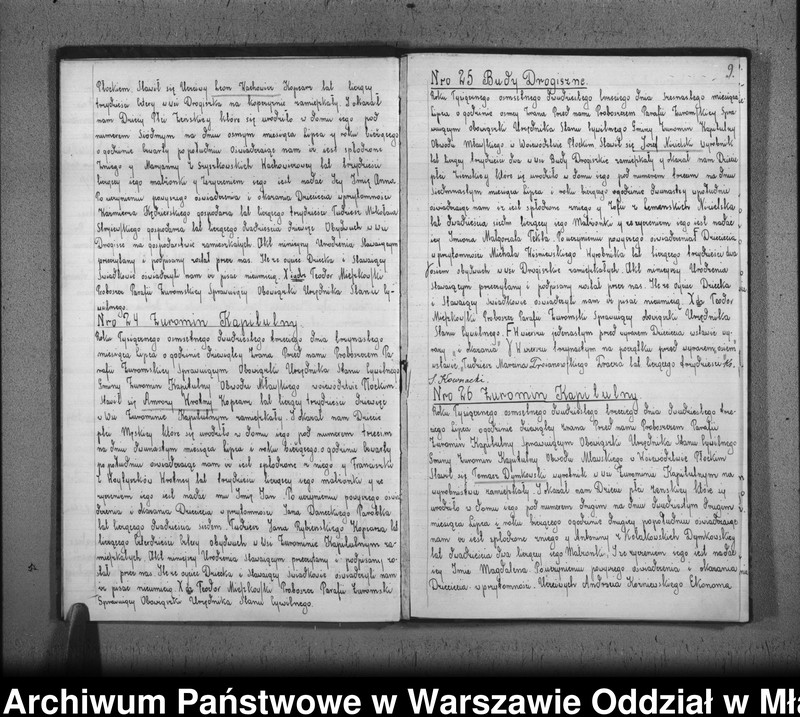 Płockiem, Stawił się Uczciwy Leon Wachowicz Kopcarz lat liczący
trzydzieści cztery w wsi Drogiszka na Kopczyznie zamieszkały. I okazał
nam Dziecię Płci Żeńskiej które się urodziło w domu jego pod
numerem Siódmym na dniu osmym miesiąca Lipca y roku bieżącego
o godzinie czwarty po południu oświadczając nam iż jest spłodzone
z niego y Maryanny z Wachowiczowej lat trzydzieści
liczącej jego małżonki y życzeniem jego jest nadać Jej Imię Anna.
Po uczynieniu powyższego oświadczenia i okazania Dziecięcia w przytomności
Kazimierza gospodarza lat liczącego trzydzieści Tudzież Mikołaia
gospodarza lat liczącego dwadzieścia dziewięć Obydwóch w wsi
Drogisze na gospodarstwie zamieszkałych. Akt niniejszy Urodzenia Stawaiącym
przeczytany i podpisany został przez nas. Ile że ojciec Dziecka i Stawaiący
Świadkowie oświadczyli nam iż pisać nieumieią. X Teodor Mieszkowski
Proboszcz Parafii Żuromskiej Sprawuiący Obowiązki Urzędnika Stanu Cy-
wilnego.
Nro 24 Żuromin Kapitulny.
Roku Tysiącznego osmsetnego dwudziestego trzeciego dnia trzynastego
miesiąca Lipca o godzinie dziewiątey zrana Przed nami Proboszczem Pa-
rafii Żuromskiey Sprawuiącym Obowiązki Urzędnika Stanu Cywilnego
Gminy Żuromin Kapitulny Obwodu Mławskiego woiewództwie Płockim
Stawił się Kopcarz lat liczący trzydzieści dziewięć
w wsi Żurominie Kapitulnym zamieszkały. I okazał nam Dziecię
płci Męskiey które się urodziło w domu jego pod numerem trzecim
na dniu dwunastym miesiąca Lipca i roku bieżącego o godzinie czwarty
po południu oświadczaiąc nam iż jest spłodzone z niego y Franciszki
lat trzydzieści liczącej jego małżonki y że
życzeniem jego jest nadać mu Imię Jan. Po uczynieniu powyższego oświa-
dczenia i okazania Dziecięcia w przytomności Jana Daneckiego Parobka
lat liczącego dwadzieścia siedem Tudzież Jana Rybienskiego Kopcarza lat
liczącego Czterdzieści Cztery obydwóch w Wsi Żurominie Kapitulnym za-
mieszkałych. Akt niniejszy Urodzenia stawaiącym przeczytany i podpisany zo-
stał przez nas Ile że Ojciec Dziecka i Stawaiący Świadkowie oświadczyli nam
iż pisać nieumieią. X Teodor Mieszkowski Proboszcz Parafii Żuromskiej
Sprawuiący Obowiązki Urzędnika Stanu Cywilnego.
9.
Nro 25 Budy Drogiszne.
Roku Tysiącznego osmsetnego dwudziestego trzeciego dnia szesnastego miesiąca
Lipca o godzinie osmey zrana Przed nami Proboszczem Parafii Żuromskiey Spra-
wuiącym obowiązki Urzędnika Stanu Cywilnego Gminy Żuromin Kapitulny
Obwodu Mławskiego w Woiewództwie Płockim Stawił się Józef Nizielski wyrobnik
lat liczący trzydzieści dwa w Wsi Budy Drogiszkie zamieszkały y okazał nam Dziecię
płci Żenskiey które się urodziło w domu jego pod numerem trzecim na dniu
siedmnastym miesiąca Lipca i roku bieżącego ogodzinie dwunasty wpołudnie
oświadczaiąc nam iż jest spłodzone z niego y Zofii z Nizielska
lat dwadzieścia siedm liczącej jego Małżonki y że życzeniem jego jest nadać
jej imiona Małgorzata Tekla. Po uczynieniu powyższego oświadczenia F Dziecięcia
w przytomności Michała Wiśniewskiego Wyrobnika lat liczącego trzydzieści dwa
Y osiem obydwuch w wsi Drogiszkie zamieszkałych Akt niniejszy Urodzenia
stawaiącym przeczytany i podpisany został przez nas. Ile że Ojciec Dziecka
i Stawaiący Świadkowie oświadczyli nam iż pisać nieumieią. X Teodor
Mieszkowski Proboszcz Parafii Żuromski Sprawuiący obowiązki Urzędnika
Stanu Cywilnego. F W wierszu jedenastym przed wyrazem Dziecięcia wstawić wy-
razy „i okazania” Y W wierszu trzynastym na początku przed wyrazem „osiem”
wstawić „Tudzież Marcina Tracza lat liczącego trzydzieści” X.
S. Kownacki.
Nro 26 Żuromin Kapitulny.
Roku Tysiącznego osmsetnego dwudziestego trzeciego dnia dwudziestego trze-
ciego Lipca ogodzinie dziewiątey zrana Przed nami Proboszczem Parafii
Żuromin Kapitulny Sprawuiącym Obowiązki Urzędnika Stanu Cywilnego
Gminy Żuromin Kapitulny Obwodu Mławskiego w Woiewództwie Płockim
Stawił się Tomasz Dymkowski wyrobnik w wsi Żurominie Kapitulnym na
wyrobnictwie zamieszkały. I okazał nam Dziecię płci Żenskiey które się
urodziło w domu jego pod numerem drugim na dniu dwudziestym drugim
miesiąca Lipca i roku bieżącego ogodzinie drugiey popołudniu oświadczaiąc
nam iż jest spłodzone z niego y Antoniny z Kołakowskich Dymkowskiey
lat dwadzieścia dwa liczącej jego Małżonki. I że życzeniem jego jest nadać
jej Imię Magdalena Po uczynieniu powyższego oświadczenia i okazania
Dziecięcia w przytomności Uczciwych Andrzeia Korzniewskiego Ekonoma
Archiwum Państwowe w Warszawie Oddział w Mła